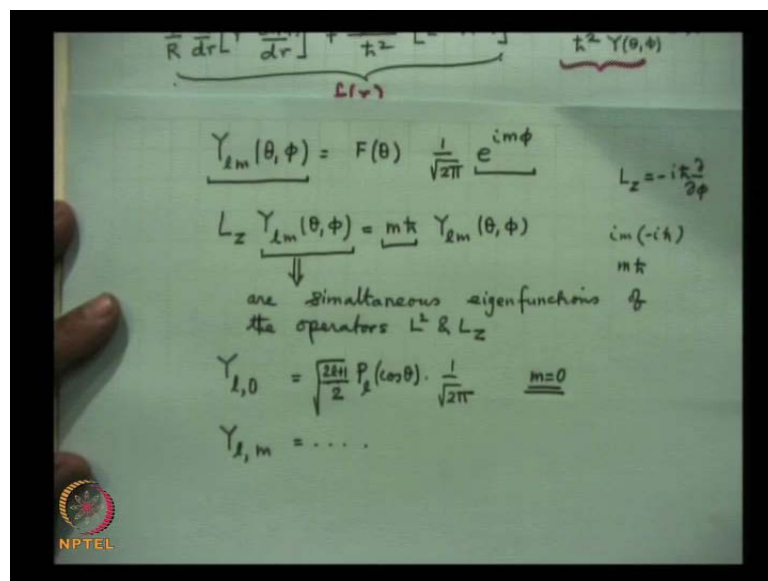 1/R d/dr [r² dR/dr] + /ħ² [E - V(r)] ħ² Y(θ,φ)
L(r)
Y_{lm}(θ,φ) = F(θ) 1/√2π e^{imφ}
L_z = -iħ ∂/∂φ
L_z Y_{lm}(θ,φ) = mħ Y_{lm}(θ,φ)
im(-iħ)
mħ
⇓
are simaltaneous eigenfunctions of
the operators L² & L_z
Y_{l,0} = √(2l+1)/2 P_l(cosθ) · 1/√2π m=0
Y_{l,m} = . . . . .
NPTEL